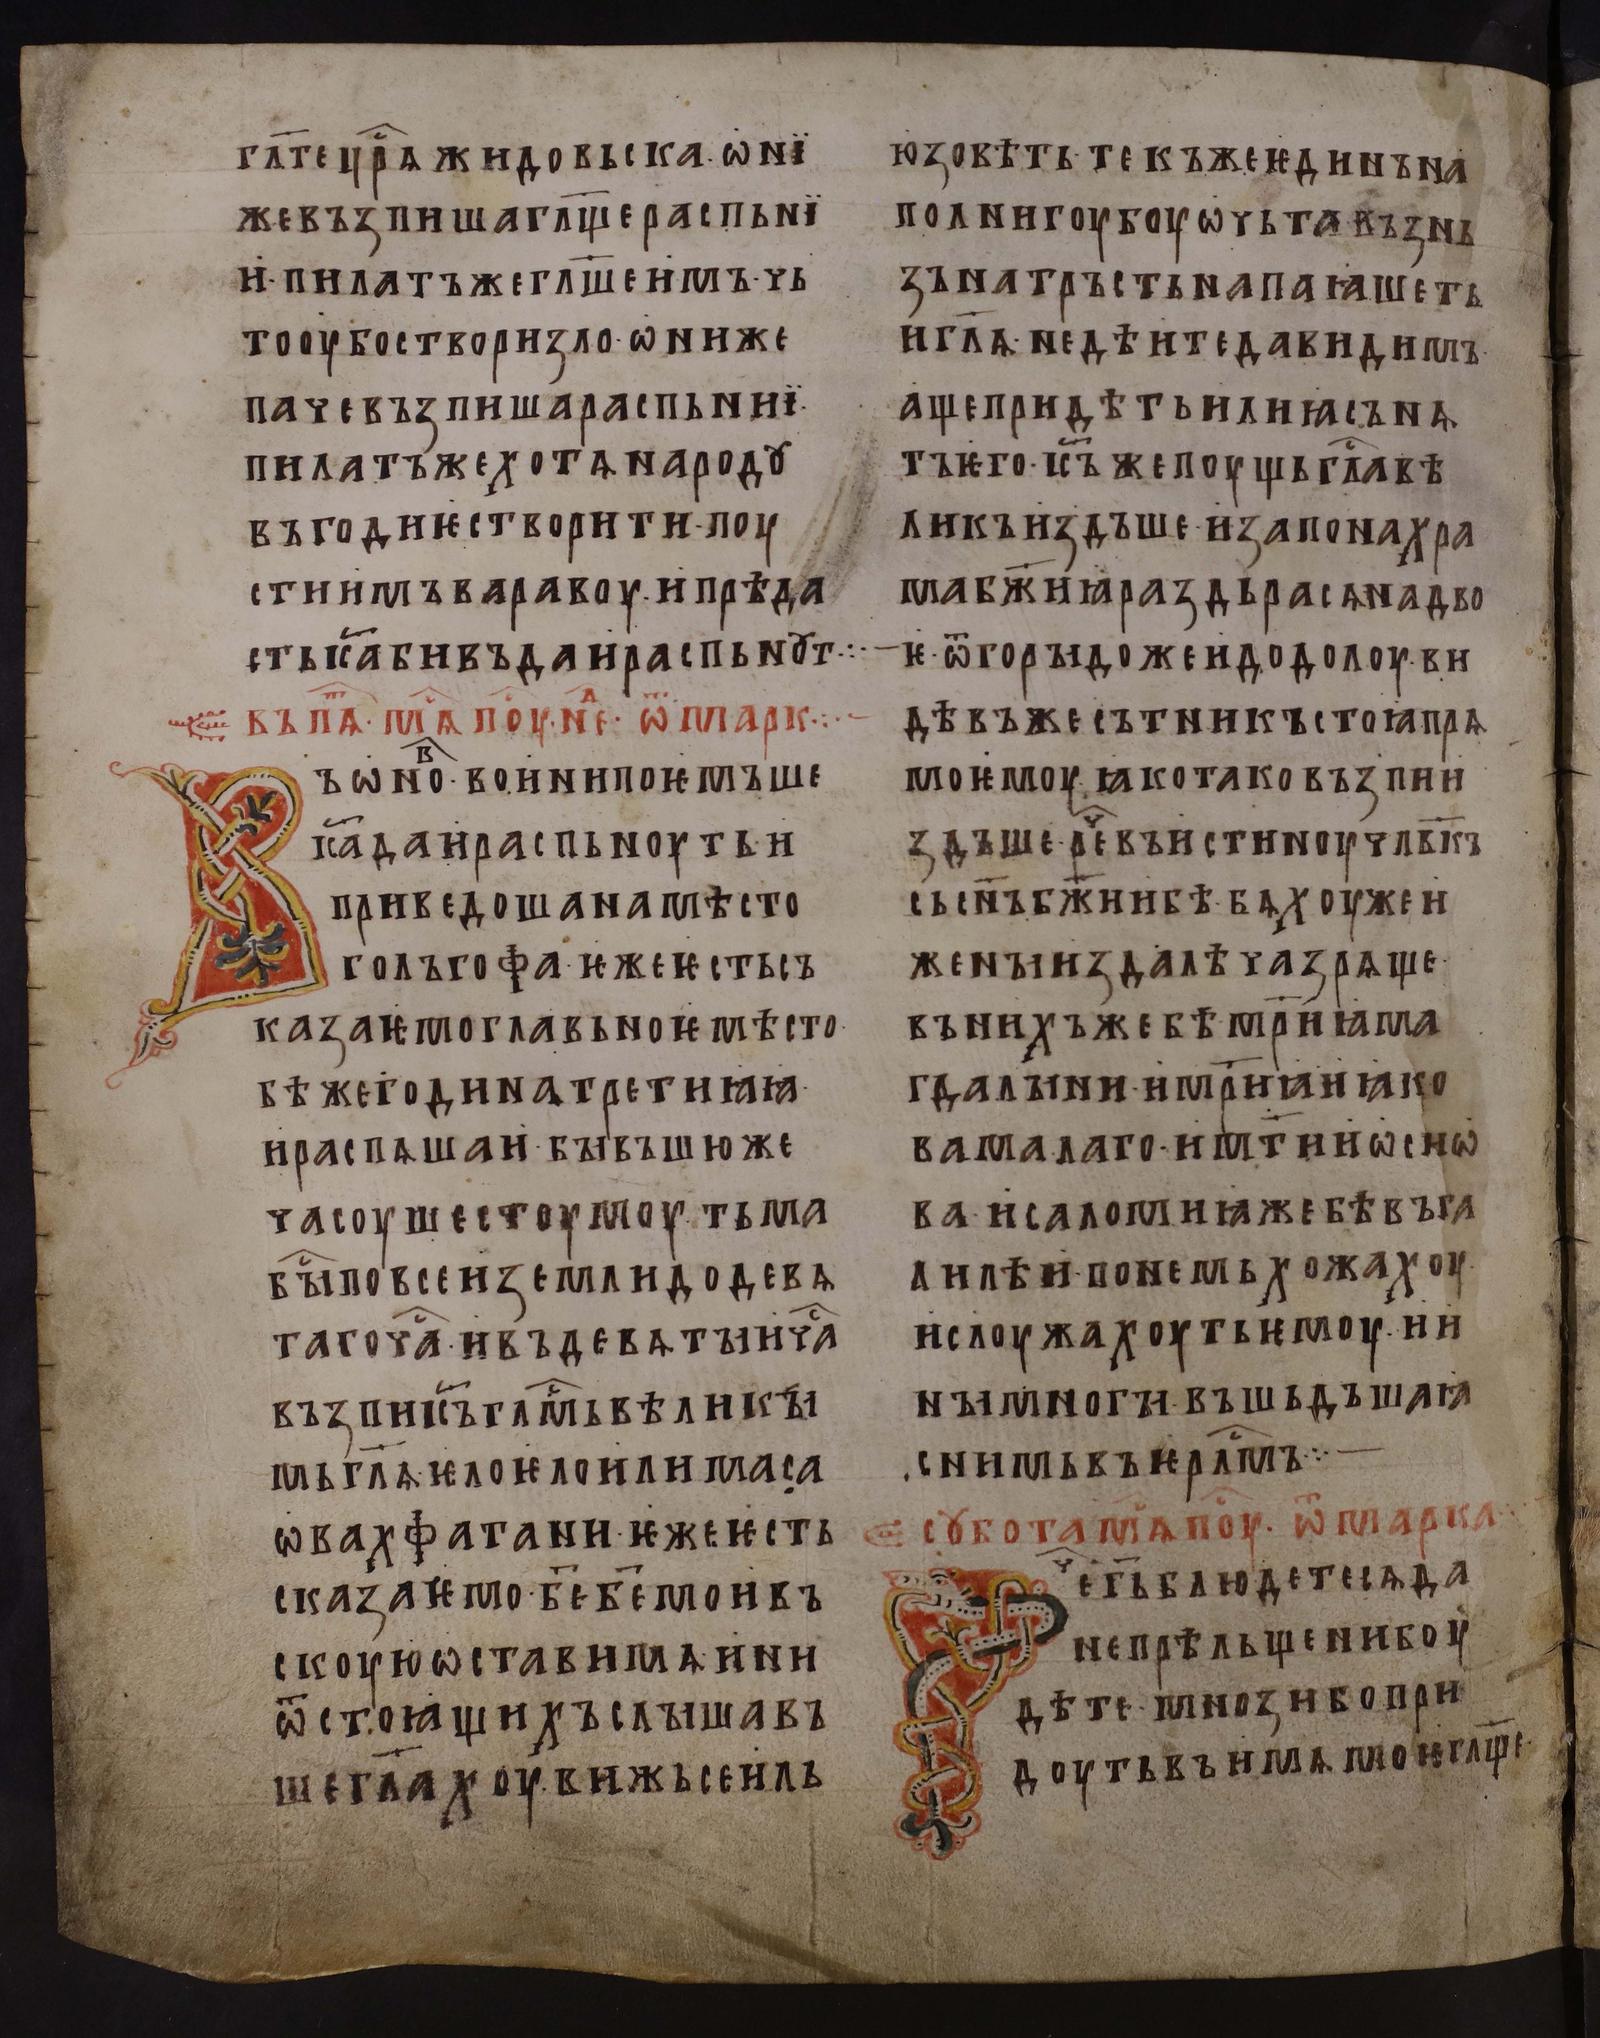 гл҃тецр҃ѧжидовьска·ѡнї
жевъзпишагл҃щераспьнї
и·пилатъжегл҃шеимъ·чь
тооубостворизло·ѡниже
пачевъзпишараспьниї·
пилатъжехотѧнародꙋ
въгодиѥстворити·поу
стиимъваравоу·ипрѣда
стьіс҃абивъдаираспьнꙋт·:·—
въпѧ҃·мс҃ѧпоу·не·ѿмарк·:·—
Въѡно·воинипоѥмъше
іс҃адаираспьноуть·и
приведошанамѣсто
голъгофа·ѥжеѥстьсъ
казаѥмоглавьноѥмѣсто·
бѣжегодинатретиꙗꙗ·
ираспѧшаи·бывъшюже
часоушестоумоу·тьма
быповсеиземлидодевѧ
тагочса·ивъдевѧтыичса
възпиіс҃ъгла҃мьвѣликы
мьгл҃ѧ·ѥлоѥлоилимаса
ѡвахфатани·ѥжеѥсть
сказаѥмо·бе҃бе҃моивъ
скоуюѡставимѧ·ини
ѿстоꙗщихъслышавъ
шегл҃ахоу·вижьсеиль
юзовѣть·текъжеѥдинъна
полнигоубоуѡчьтавъзнь
зънатръстьнапаꙗшеть
игл҃ѧ·недѣитедавидимъ·
ащепридѣтьилиꙗсънѧ
тъѥго·іс҃ъжепоущьгла҃вѣ
ликъиздъше·изапонахра
мабж҃иꙗраздьрасѧнадво
ѥ·ѿгорыдожеидодолоу·ви
дѣвъжесътникъстоꙗпрѧ
моѥмоу·ꙗкотаковъзпии
здъше·речевъистиноучлв҃къ
сьсн҃ъбж҃иибѣ·бѧхоужеи
женыиздалѣчазрѧще·
въниxъжебѣмр҃иꙗма
гдалыни·имр҃иꙗиꙗко
вамалаго·имт҃ииѡсиѡ
ва·исаломиꙗжебѣвъга
лилѣи·понемьхожахоу·
ислоужахоутьѥмоу·ии
нымногы·въшьдъшаꙗ
снимьвъѥрл҃мъ·:·—
сꙋботамс҃ѧпоу·ѿмарка·:·
Речегь҃блюдетесѧда
непрѣльщенибоу
дѣте·мнозибопри
доутьвъимѧмоѥгл҃ще·